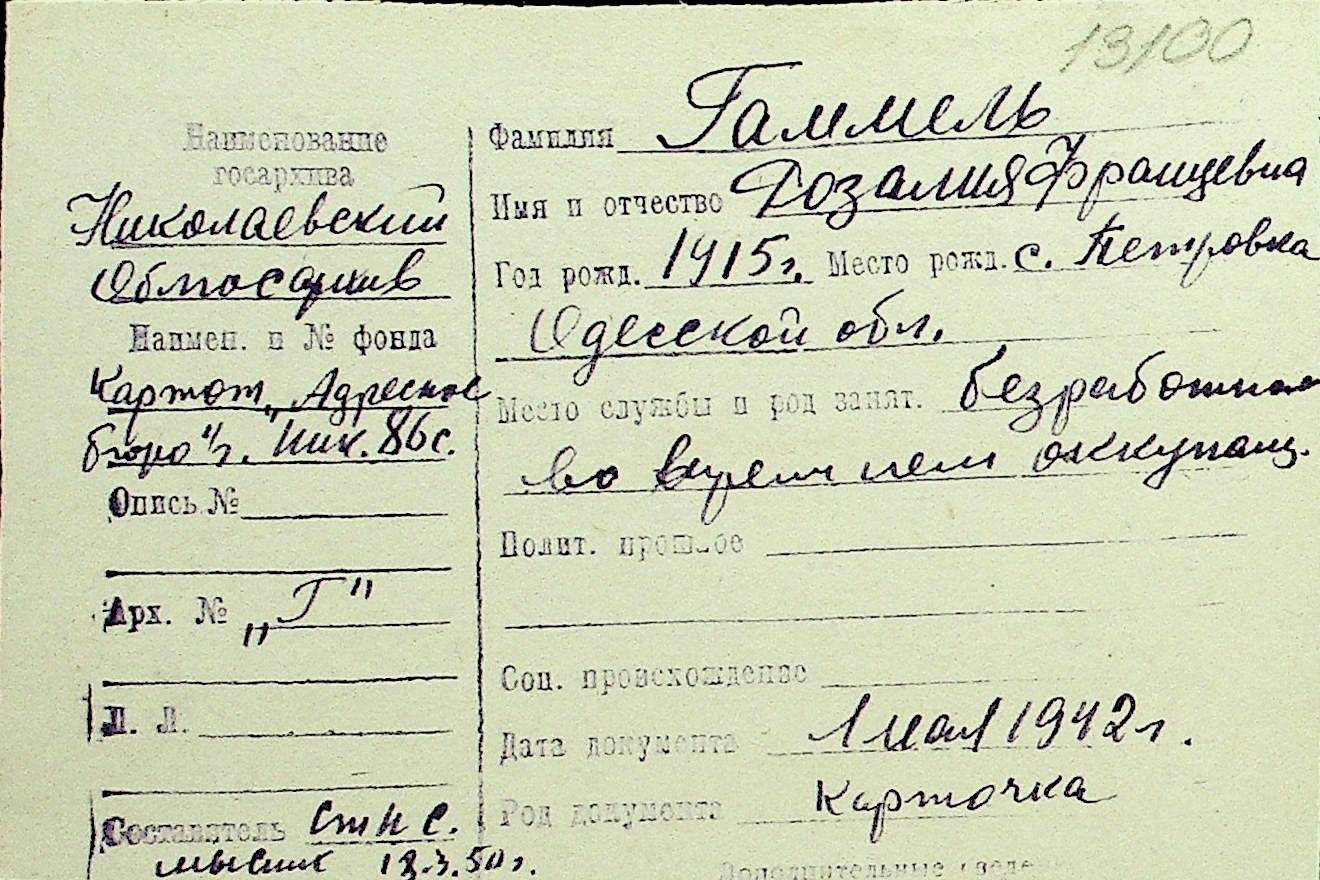 13100
Наименование
госархива
Николаевский
Облгосархив
Наимен. и № фонда
Картот. „Адресное
бюро" г. Ник. 86с.
Опись №
Арх. № „Г"
Л. Л.
Составитель
13.3.50г.
Фамилия Гаммель
Имя и отчество Розалия Францевна
Год рожд. 1915г. Место рожд. с. Петровка
Одесской обл.
Место службы и род занят. безработная
во время нем оккупац.
Полит. прошлое
Соц. происхождение
Дата документа 1 мая 1942г.
Род документа карточка
Дополнительные сведен